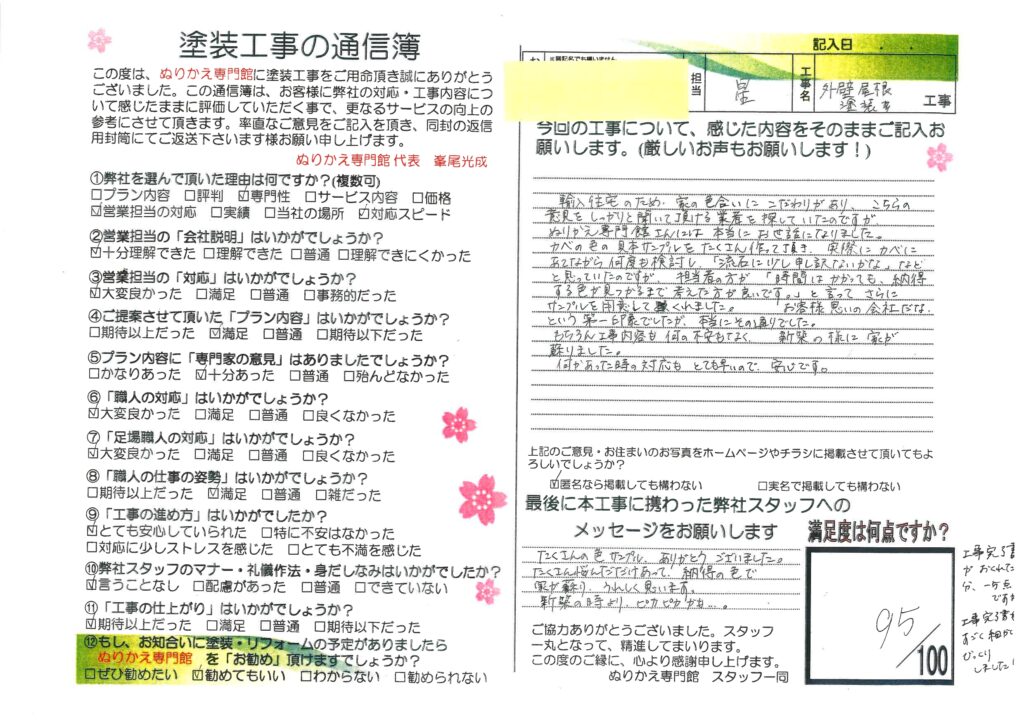 塗装工事の通信簿
この度は、ぬりかえ専門館に塗装工事をご用命頂き誠にありがとう
ございました。この通信簿は、お客様に弊社の対応・工事内容に
ついて感じたままに評価していただく事で、更なるサービスの向上の
参考にさせて頂きます。率直なご意見をご記入を頂き、同封の返信
用封筒にてご返送下さいます様お願い申し上げます。
ぬりかえ専門館 代表 峯尾光成
①弊社を選んで頂いた理由は何ですか?(複数可)
□プラン内容 □評判 ☑専門性 □サービス内容 □価格
☑営業担当の対応 □実績 □当社の場所 ☑対応スピード
②営業担当の「会社説明」はいかがでしょうか?
☑十分理解できた □理解できた □普通 □理解できにくかった
③営業担当の「対応」はいかがでしょうか?
☑大変良かった □満足 □普通 □事務的だった
④ご提案させて頂いた「プラン内容」はいかがでしょうか?
□期待以上だった ☑満足 □普通 □期待以下だった
⑤プラン内容に「専門家の意見」はありましたでしょうか?
□かなりあった ☑十分あった □普通 □殆んどなかった
⑥「職人の対応」はいかがでしょうか?
☑大変良かった □満足 □普通 □良くなかった
⑦「足場職人の対応」はいかがでしょうか?
☑大変良かった □満足 □普通 □良くなかった
⑧「職人の仕事の姿勢」はいかがでしょうか?
□期待以上だった ☑満足 □普通 □雑だった
⑨「工事の進め方」はいかがでしたか?
☑とても安心していられた □特に不安はなかった
□対応に少しストレスを感じた □とても不満を感じた
⑩弊社スタッフのマナー・礼儀作法・身だしなみはいかがでしたか?
☑言うことなし □配慮があった □普通 □できていない
⑪「工事の仕上がり」はいかがでしょうか?
☑期待以上だった □満足 □普通 □期待以下だった
⑫もし、お知合いに塗装・リフォームの予定がありましたら
ぬりかえ専門館 を「お勧め」頂けますでしょうか?
□ぜひ勧めたい ☑勧めてもいい □わからない □勧められない
記入日 . .
担当 星 工事名 外壁屋根塗装 工事
今回の工事について、感じた内容をそのままご記入お
願いします。(厳しいお声もお願いします!)
輸入住宅のため、家の色合いにこだわりがあり、こちらの
意見をしっかりと聞いて頂ける業者を探していたのですが
ぬりかえ専門館さんには本当にお世話になりました。
カベの色の見本サンプルをたくさん作って頂き、実際にカベに
あてながら何度も検討し、「流石に少し申し訳ないかな」など
と思っていたのですが 担当者の方が「時間はかかっても、納得
する色が見つかるまで考えた方が良いです。」と言って さらに
サンプルを用意してくれました。 お客様思いの会社だな、
という第一印象でしたが、本当にその通りでした。
もちろん工事内容も何の不安もなく、新築の様に家が
蘇りました。
何かあった時の対応もとても早いので、安心です。
上記のご意見・お住まいのお写真をホームページやチラシに掲載させて頂いてもよ
ろしいでしょうか?
☑匿名なら掲載しても構わない □実名で掲載しても構わない
最後に本工事に携わった弊社スタッフへの
メッセージをお願いします
たくさんの色サンプル、ありがとうございました。
たくさん悩んだだけあって、納得の色で
家が蘇り、うれしく思います。
新築の時より、ピカピカかも…。
ご協力ありがとうございました。スタッフ
一丸となって、精進してまいります。
この度のご縁に、心より感謝申し上げます。
ぬりかえ専門館 スタッフ一同
満足度は何点ですか?
95/100
工事完了書
がおくれた
分、-5点
です
工事完了書が
すごく細かくて
びっくり
しました!